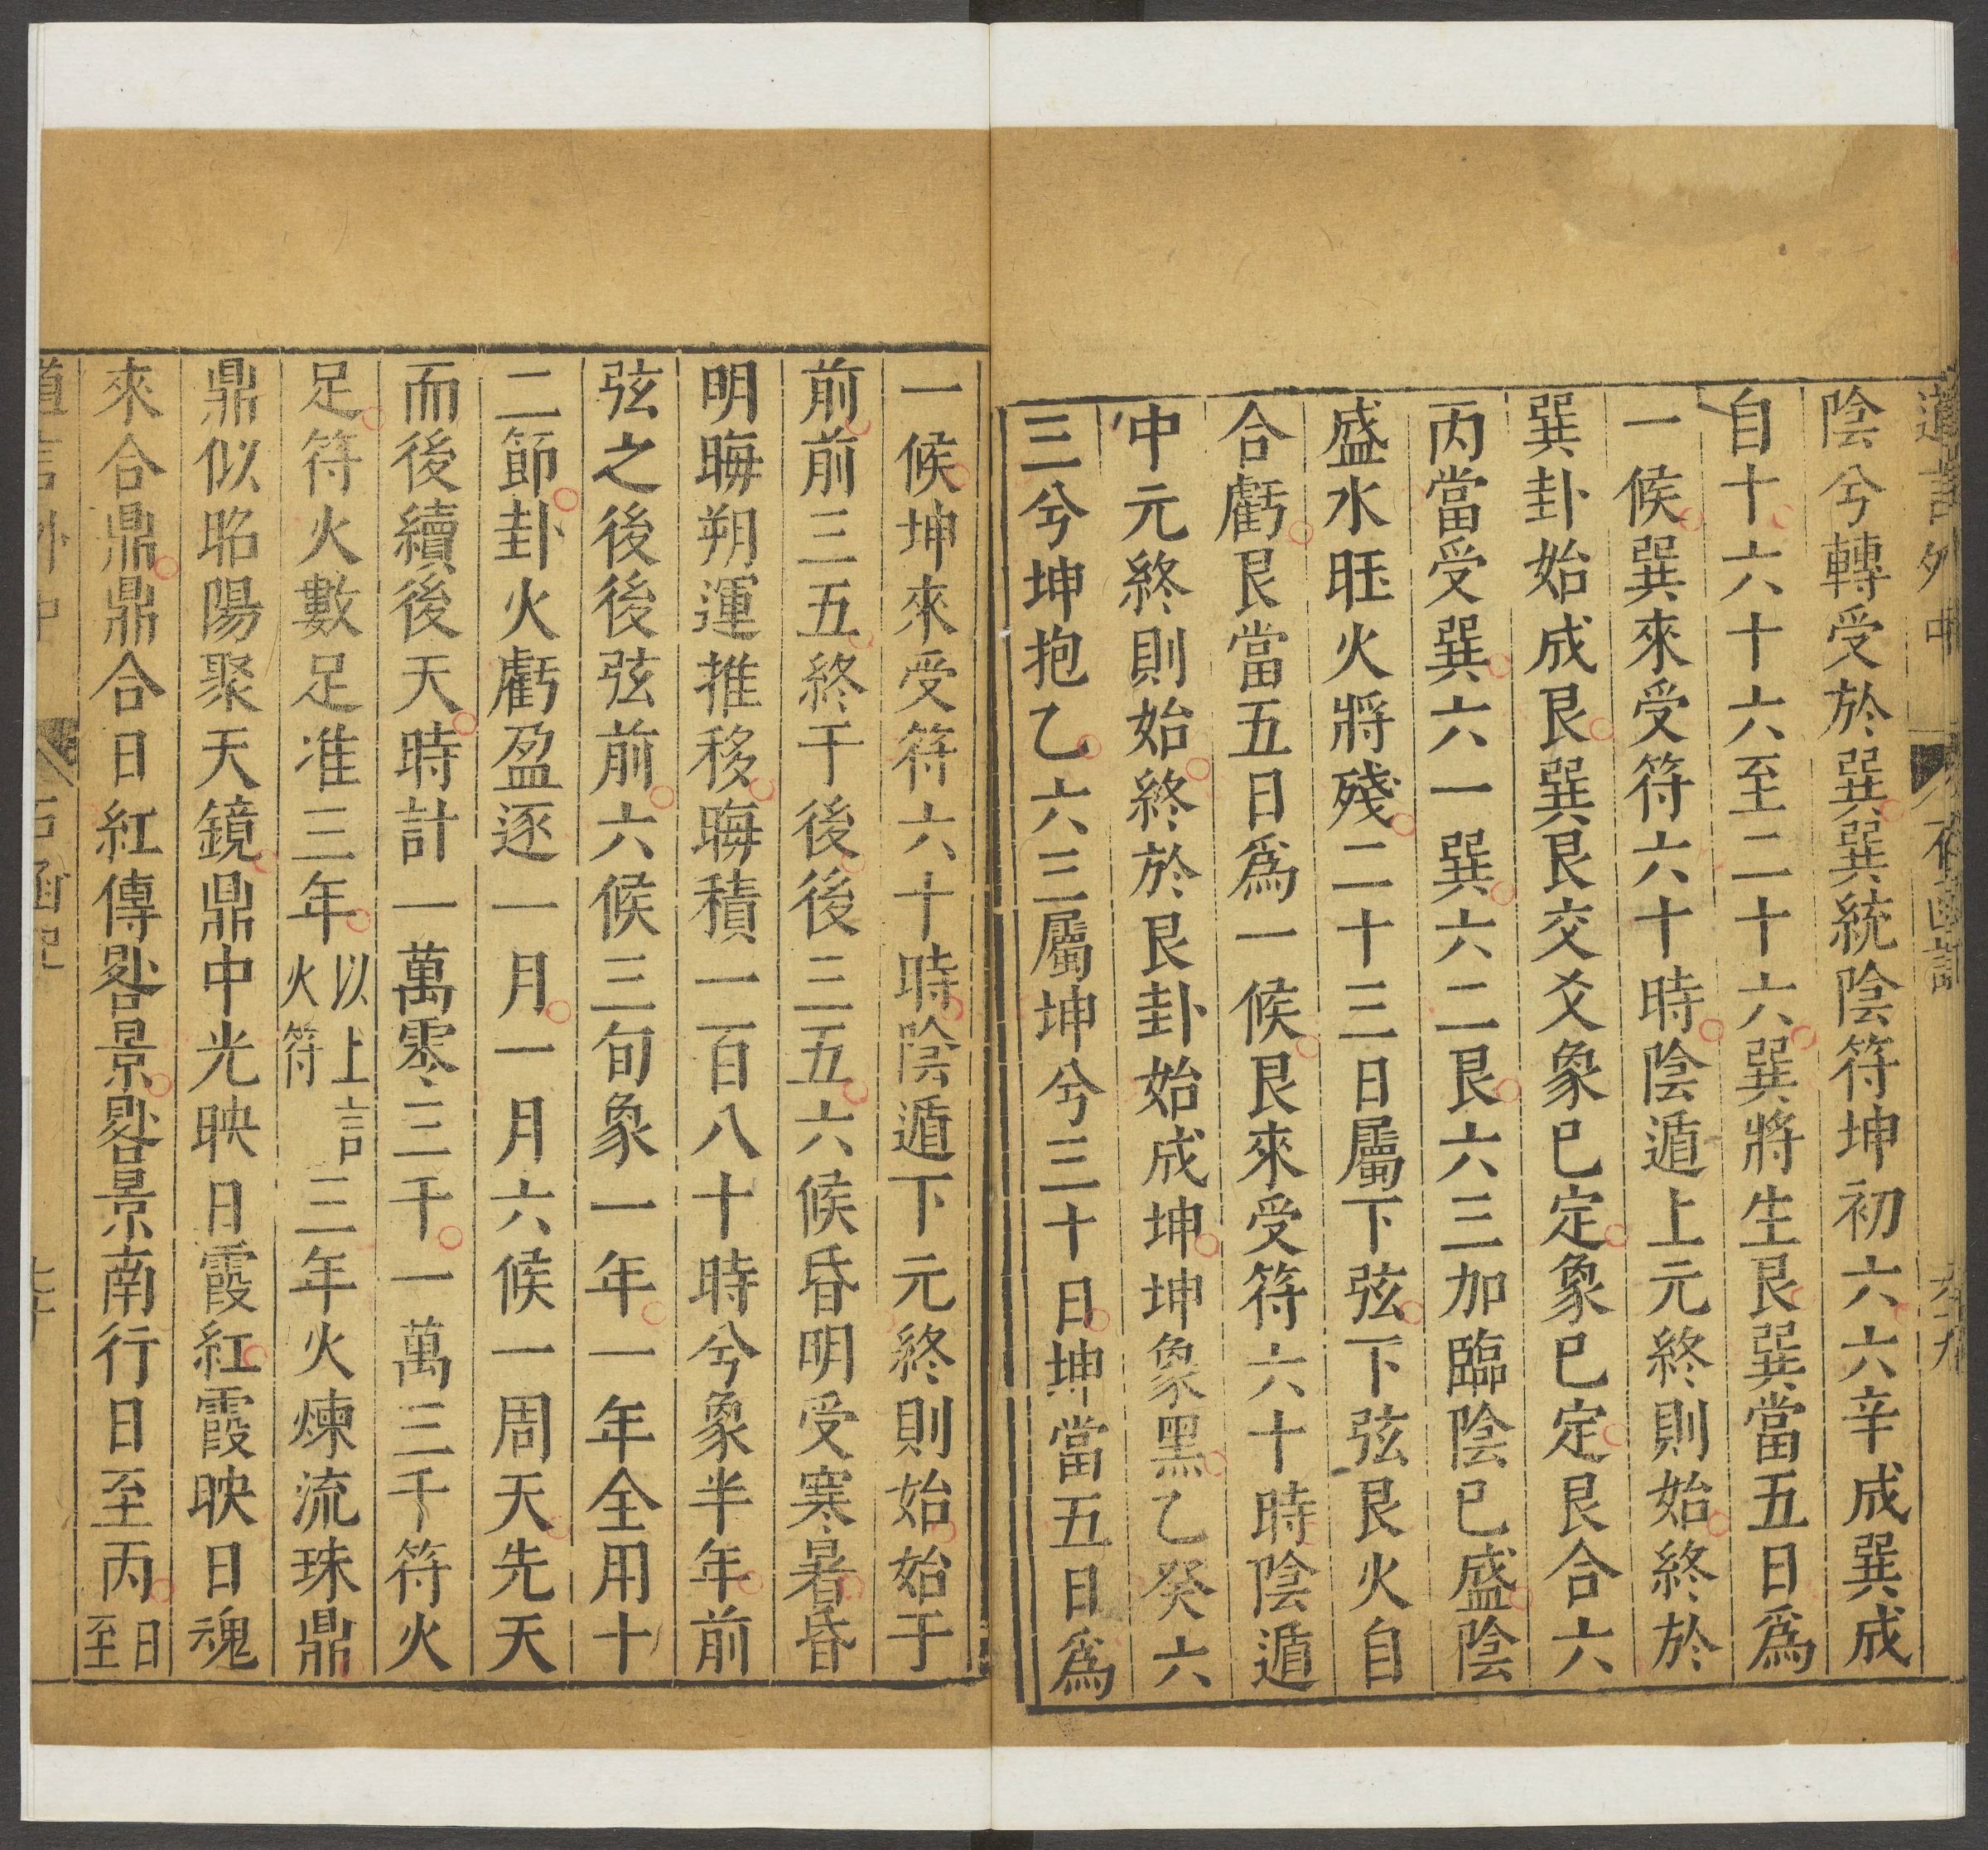 道言外中 石函記 六十九
陰兮轉受於巽巽統陰符坤初六六辛成巽成
自十六十六至二十六巽將生艮巽當五日爲
一候巽來受符六十時陰遁上元終則始終於
巽卦始成艮巽艮交爻象已定象已定艮合六
丙當受巽六一巽六二艮六三加臨陰已盛陰
盛水旺火將殘二十三日屬下弦下弦艮火自
合虧艮當五日爲一候艮來受符六十時陰遁
中元終則始終於艮卦始成坤坤象黑乙癸六
三兮坤抱乙六三屬坤兮三十日坤當五日爲
一候坤來受符六十時陰遁下元終則始始于
前前三五終于後後三五六候昏明受寒暑昏
明晦朔運推移晦積一百八十時兮象半年前
弦之後後弦前六候三旬象一年一年全用十
二節卦火虧盈逐一月一月六候一周天先天
而後續後天時計一萬零三千一萬三千符火
足符火數足准三年以上言火符三年火煉流珠鼎
鼎似昭陽聚天鏡鼎中光映日霞紅霞映日魂
來合鼎鼎合日紅傳晷景晷景南行日至丙日至
道言外中 石函記